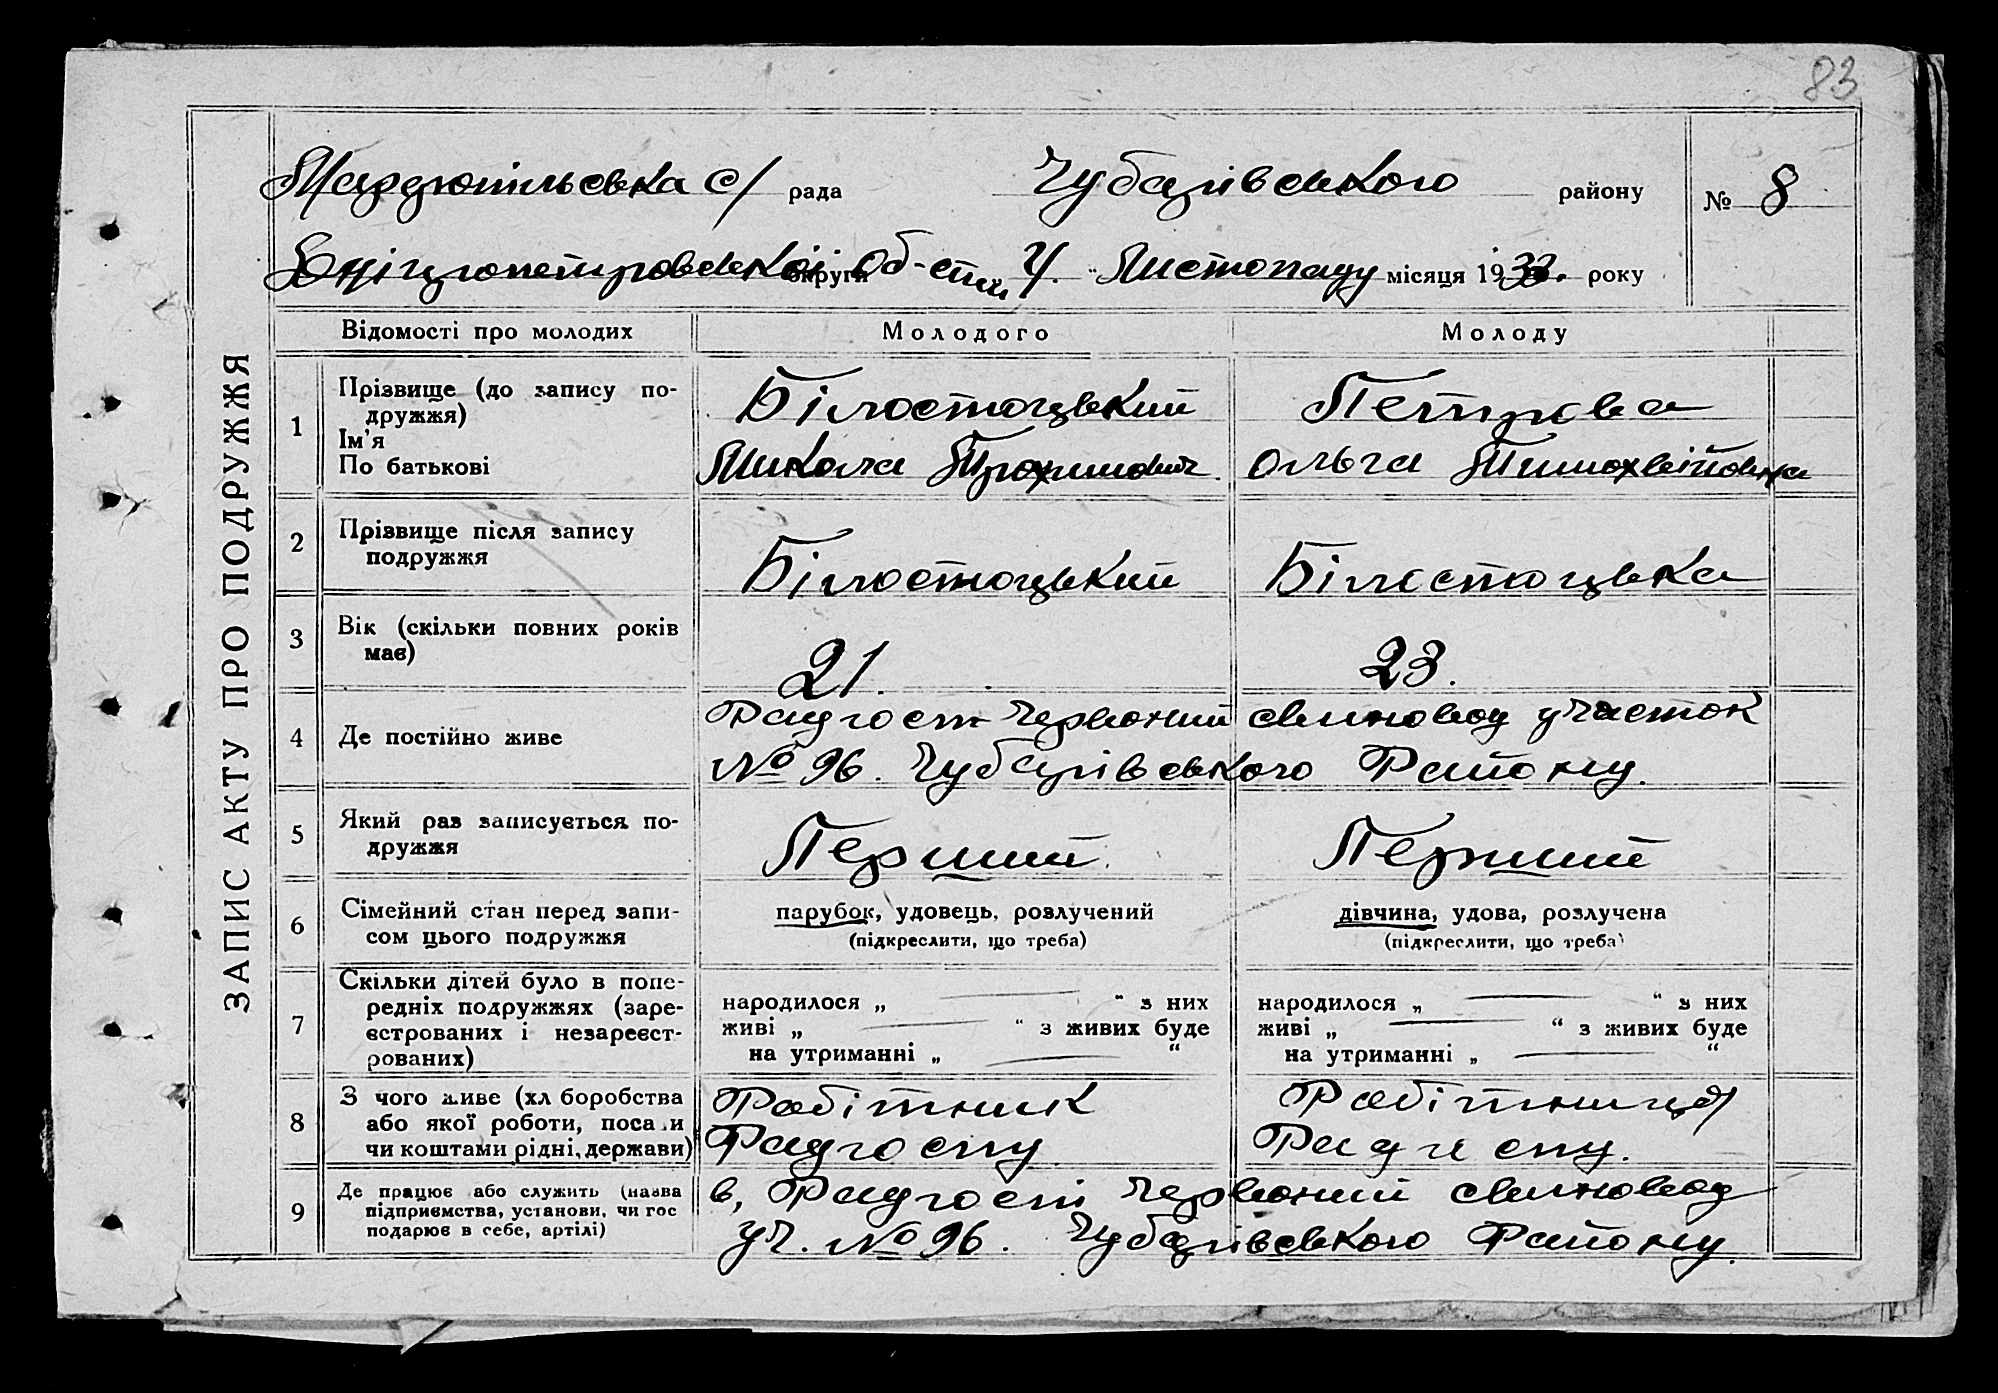 83
Марфопільська с/ рада Чубарівського району № 8
Дніпропетровської округи об-сти 4. " Листопаду місяця 1933. року
ЗАПИС АКТУ ПРО ПОДРУЖЖЯ
Відомості про молодих Молодого Молоду
1 Прізвище (до запису по-
дружжя)
Ім'я
По батькові
Білостоцький
Микола Трохимович.
Петрова
Ольга Тимохвіївна
2 Прізвище після запису
подружжя
Білостоцький
Білостоцька
3 Вік (скільки повних років
має)
21.
23.
4 Де постійно живе
Радгосп Червоний свиновод участок
№ 96. Чубарівського Району.
5 Який раз записується по-
дружжя
Перший.
Перший
6 Сімейний стан перед запи-
сом цього подружжя
парубок, удовець, розлучений
(підкреслити, що треба)
дівчина, удова, розлучена
(підкреслити, що треба)
7 Скільки дітей було в попе-
редніх подружжях (заре-
єстрованих і незареєст-
рованих)
народилося „ — “ з них
живі „ — “ з живих буде
на утриманні „ — “
народилося „ — “ з них
живі „ — “ з живих буде
на утриманні „ — “
8 З чого живе (хліборобства
або якої роботи, посади
чи коштами рідні, держави)
Робітник
Радгоспу
Робітниця
Радгоспу.
9 Де працює або служить (назва
підприємства, установи, чи гос
подарює в себе, артілі)
в, Радгоспі Червоний свиновод
уч. № 96. Чубарівського Району.